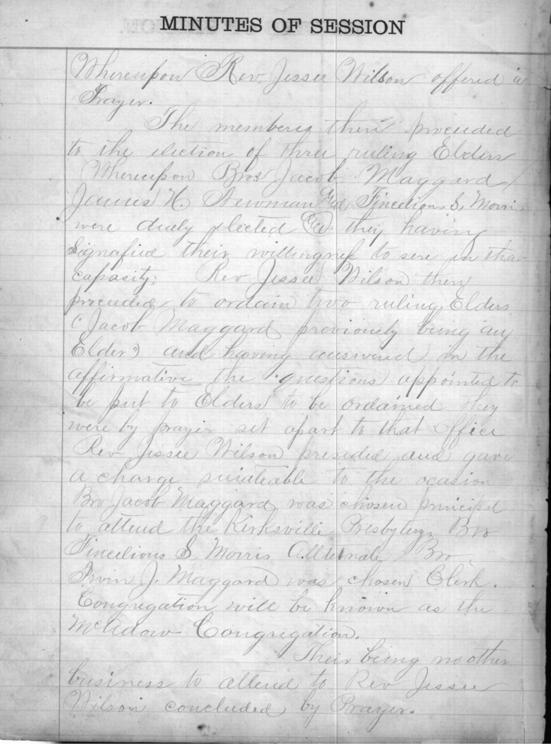 MINUTES OF SESSION
Whereupon Rev Jessee Wilson offered a
Prayer.
The members then proceeded
to the election of three ruling Elders
Whereupon Bros Jacob Maggard
James H Newman and Fincelious S. Morris
were duely elected they having
signafied their willingness to serve in that
capasity; Rev Jessee Wilson then
proceeded to ordain two ruling Elders
(Jacob Maggard previously being an
Elder) and having answered in the
affirmative the questions appointed to
be put to Elders to be ordained they
were by prayer set apart to that office
Rev Jessee Wilson presided and gave
a charge suiteable to the ocasion
Bro Jacob Maggard was chosen principal
to attend the Kirksville Presbytery Bro
Fincelious S. Morris Alternate Bro
Irvin J. Maggard was chosen Clerk.
Congregation will be known as the
McAdow Congregation.
Their being no other
business to attend to Rev Jessee
Wilson concluded by Prayer.